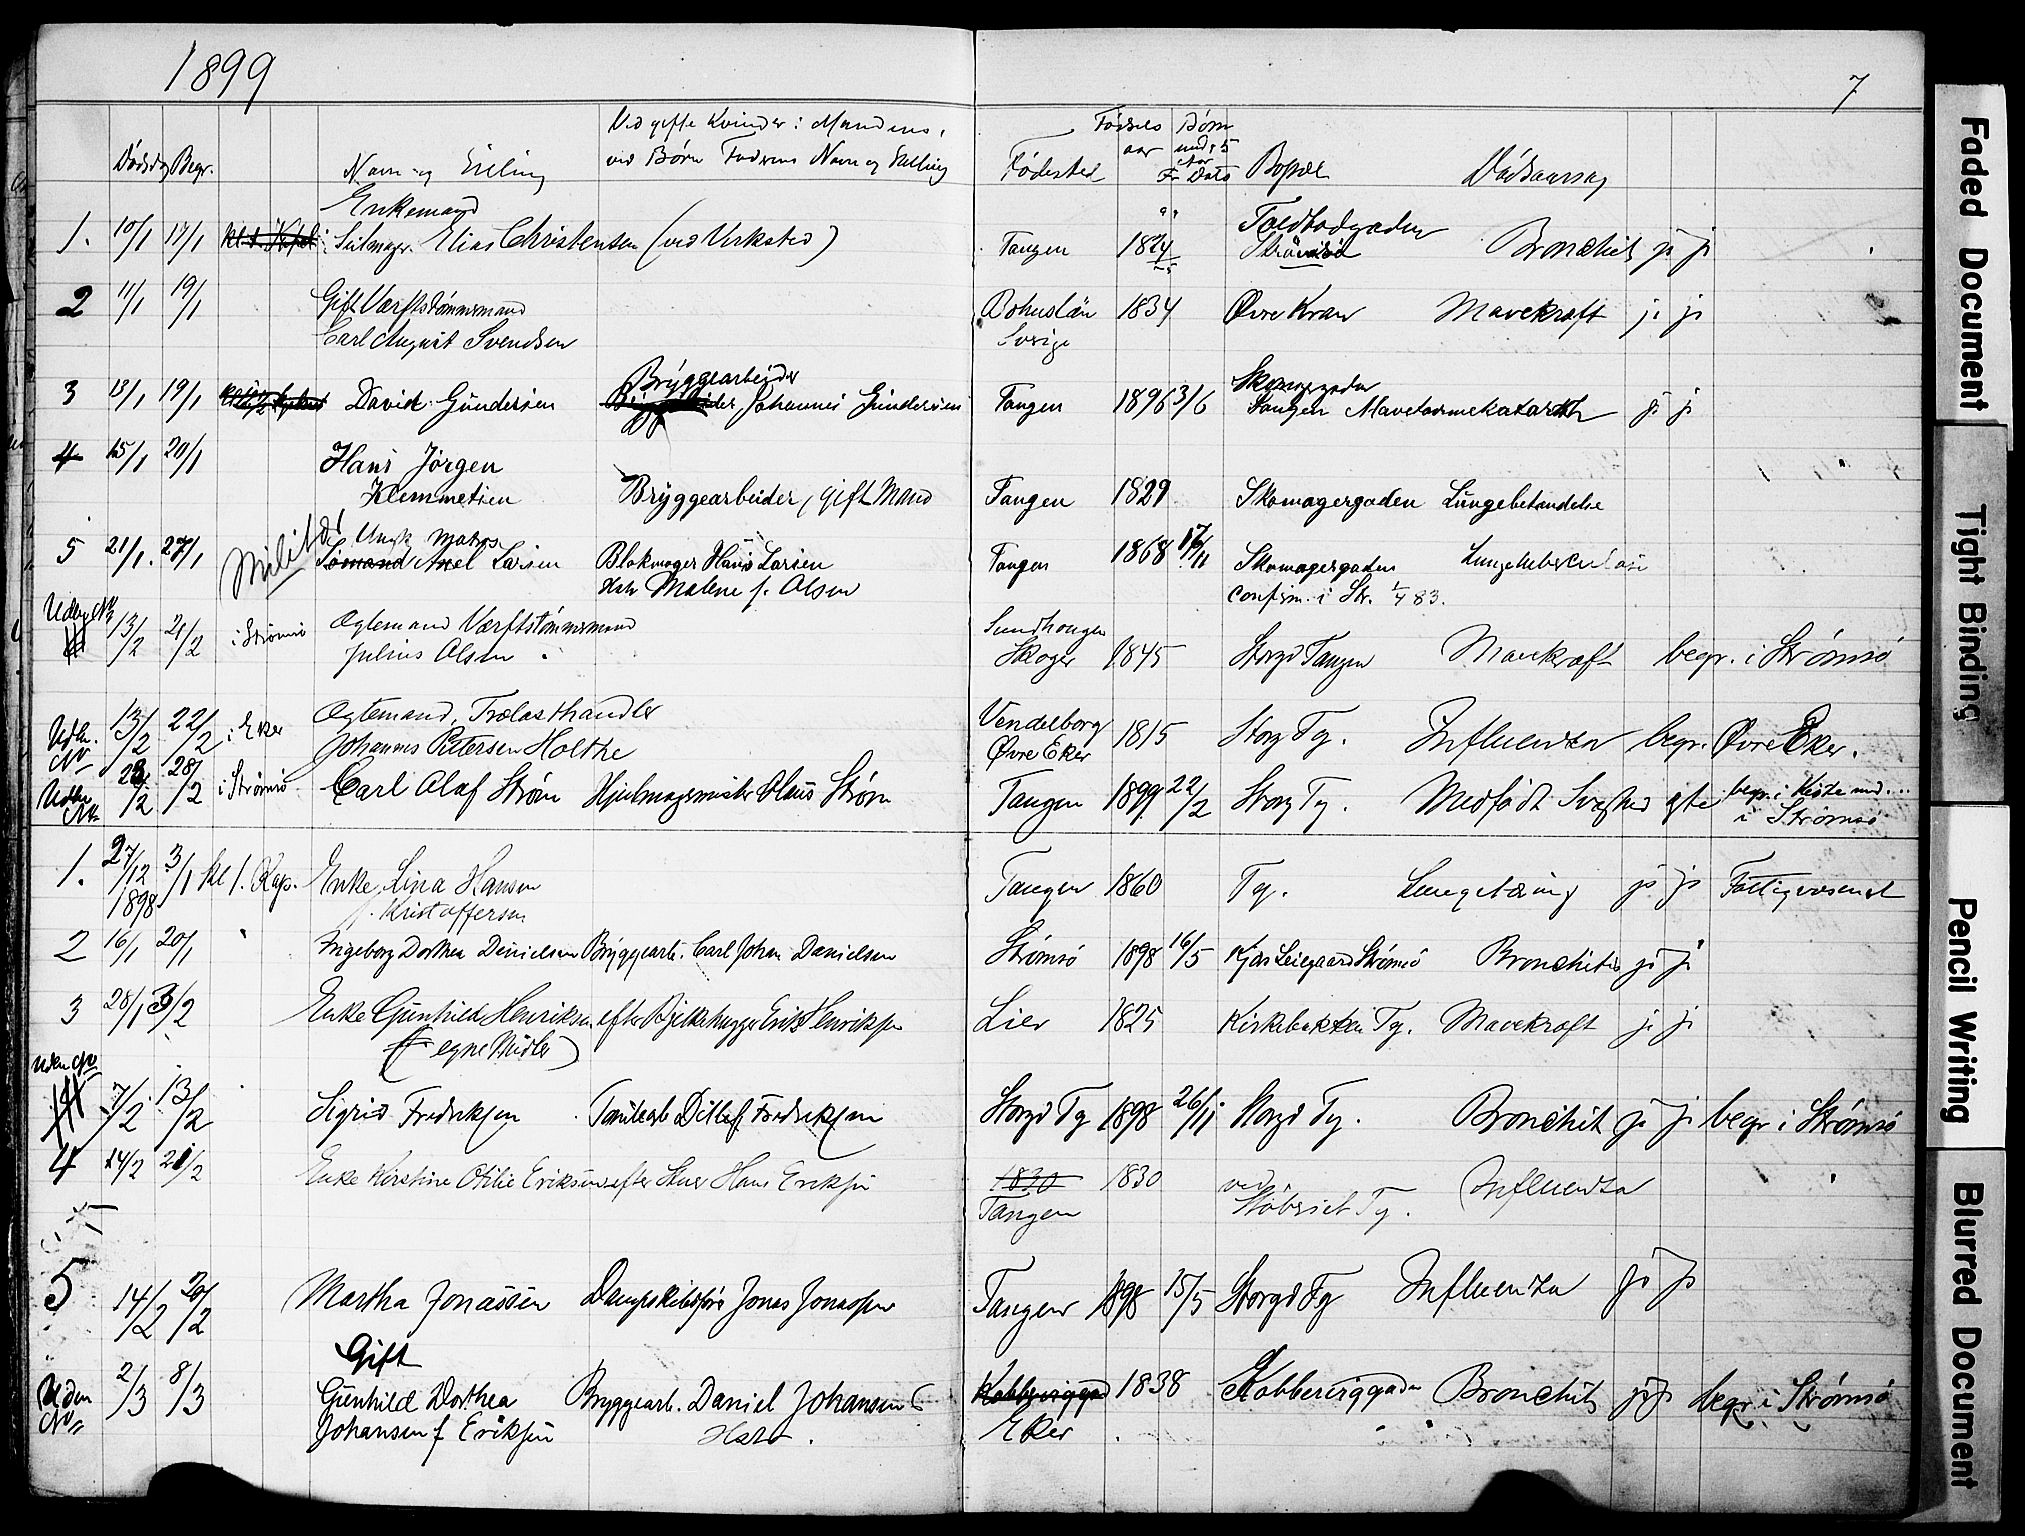 1899
7
Dødsdag Begr. Navn og Stilling
Ved gifte Kvinder: Mandens,
ved Børn Faderens Navn og Stilling
Fødested
Fødsels
aar
Børn
under 5
Aar
Fs Dato
Bopæl
Dødsaarsag
Enkemand
1. 10/1 17/1 Seilmager. Elias Christensen (ved Verksted) Tangen 1824 Toldbodgaden
Strømsø Bronchit ja ja
2 11/1 19/1 Gift Værftstømmermand
Carl August Svendsen
Bohuslän 1834 Øvre Kran Mavekræft ja ja
Sverige
3 13/1 19/1 David Gundersen
Bryggearbeider
Johannes Gundersen Tangen 1896 3/6 Skomagergaden
Tangen Mavetarmekatarrh ja ja
4 15/1 20/1 Hans Jørgen
Klemmetsen Bryggearbeider, gift Mand Tangen 1829 Skomagergaden Lungebetændelse
Militær Ungk. Matros
5 21/1. 27/1 Sømand Axel Larsen Blokmager Hans Larsen Tangen 1868 17/11 Skomagergaden Lungetuberculose
Malene f. Olsen Confirm. i Str. 1/4 83.
Uden No
13/2 21/2 i Strømsø Ogtemand Værftstømmermand
Julius Olsen
Sundhaugen
Skoger 1845 Storgd Tangen Mavekræft begr. i Strømsø
Uden No 13/2 22/2 i Eker Ogtemand, Trælasthandler
Johannes Pettersen Holthe
Vendelborg
Øvre Eker 1815 Storg Tg. Influenza begr. Øvre Eker.
Uden No 23/2 28/2 i Strømsø Carl Olaf Strøm Hjulmagermester Olaus Strøm Tangen 1899 22/2 Storg Tg. Medfødt Svaghed begr. i Kiste med....
i Strømsø
1. 27/12 1898 3/1 kl 1. Kap. Enke, Lina Hansen
f. Kristoffersen
Tangen 1860 Tg. Lungetæring ja ja Fattigvæsenet
2 16/1 20/1 Ingeborg Dorthea Danielsen Bryggearb. Carl Johan Danielsen Strømsø 1898 16/5 Strømsø Bronchitis ja ja
3 28/1 3/2 Enke Gunhild Henriksen efter Bjelkehugger Erik Henriksen
(f egne Midler)
Lier 1825 Kirkebakken Tg. Mavekræft ja ja
Uden No
7/2 13/2 Sigrid Fredriksen Ditlef Fredriksen Storgd Tg 1898 26/11 Storgd Tg. Bronchit ja ja begr i Strømsø
4 14/2 21/2 Enke Kirstine Otilie Eriksen efter Hans Eriksen 1830 1830 ved
Tangen Støberiet Tg. Influenza
5 14/2 20/2 Martha Jonassen Dampskibsfører Jonas Jonassen Tangen 1898 15/5 Storgd Tg Influenza ja ja
Gift
Uden No 2/3 8/3 Gunhild Dorthea
Johansen f Eriksen
Bryggearb. Daniel Johansen Kobbervigga 1838 Kobberviggaden Bronchit ja ja begr. i Strømsø
Eker
Faded Document
Tight Binding
Pencil Writing
Blurred Document